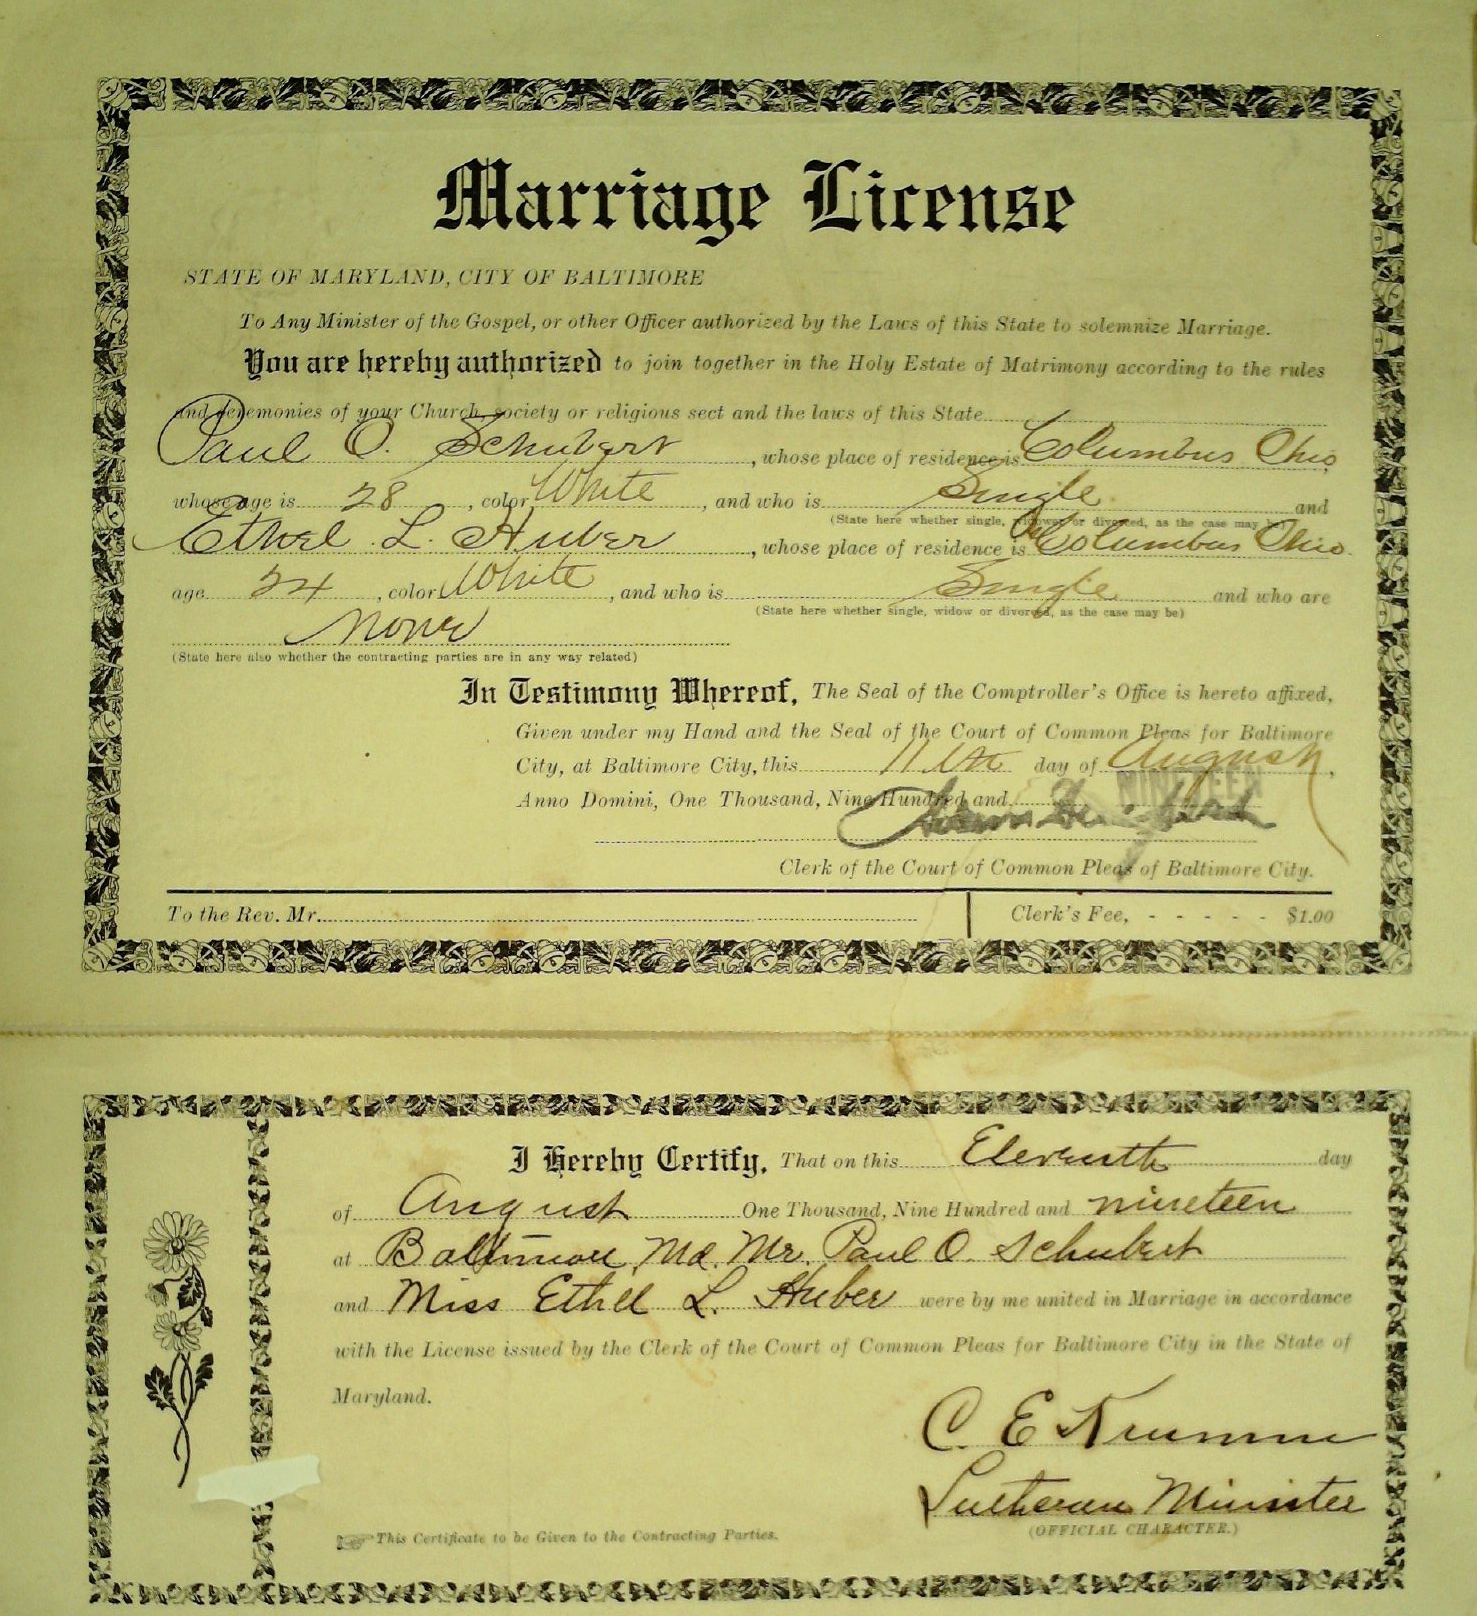 Marriage License
STATE OF MARYLAND, CITY OF BALTIMORE
To Any Minister of the Gospel, or other Officer authorized by the Laws of this State to solemnize Marriage.
You are hereby authorized to join together in the Holy Estate of Matrimony according to the rules
and ceremonies of your Church, society or religious sect and the laws of this State
Paul O. Schubert, whose place of residence is Columbus Ohio
whose age is 28, color White, and who is Single and
(State here whether single, widower or divorced, as the case may be)
Ethel L. Huber, whose place of residence is Columbus Ohio
age 24, color White, and who is Single and who are
(State here whether single, widow or divorced, as the case may be)
None
(State here also whether the contracting parties are in any way related)
In Testimony Whereof, The Seal of the Comptroller's Office is hereto affixed,
Given under my Hand and the Seal of the Court of Common Pleas for Baltimore
City, at Baltimore City, this 11th day of August,
Anno Domini, One Thousand, Nine Hundred and NINETEEN
Clerk of the Court of Common Pleas of Baltimore City.
To the Rev. Mr. Clerk's Fee, - - - - - $1.00
I Hereby Certify, That on this Eleventh day
of August One Thousand, Nine Hundred and nineteen
at Baltimore, Md. Mr. Paul O. Schubert
and Miss Ethel L. Huber were by me united in Marriage in accordance
with the License issued by the Clerk of the Court of Common Pleas for Baltimore City in the State of
Maryland.
C. E. Krumm
Lutheran Minister
(OFFICIAL CHARACTER.)
This Certificate to be Given to the Contracting Parties.